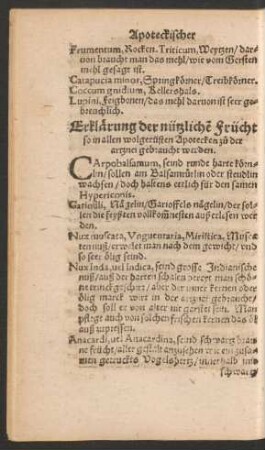 Apoteckischer
Frumentum, Rocken. Triticum, Weytzen / dar-
uon braucht man das mehl / wie vom Gersten
mehl gesagt ist.
Catapucia minor, Springkörner / Treibkörner.
Coccum gnidium, Kellershals.
Lupini, Feigbonen / das mehl daruon ist seer ge-
breuchlich.
Erklärung der nützlichē Frücht
so in allen wolgerüsten Apotecken zů der
artznei gebraucht werden.
CArpobalsamum, seind runde harte körn-
lin / sollen am Balsamürlin oder steudlin
wachsen / doch haltens etlich für den samen
Hypericonis.
Gariofili, Nägelin / Garioffels nägelin / der sol-
len die feyßten vollkomnesten außerlesen wer
den.
Nux muscata, Unguentaria, Miristica. Musca-
tennuß / erwelet man nach dem gewicht / vnd
so seer ölig seind.
Nux inda, uel Indica, seind grosse Indianische
nuß / auß der harten schalen drehet man schö-
ne trinckgeschirr / aber der inner kernen oder
ölig marck wirt in der artznei gebraucht /
doch soll er von alter nit gerost sein. Man
pflegt auch von solchen frischen kernen das öl
auß zupressen.
Anacardi, uel Anacardina, seind schwartz brau
ne frücht / aller gestalt anzusehen wie ein zusa-
men getruckts Vogelshertz / inwendig mit
schwartz